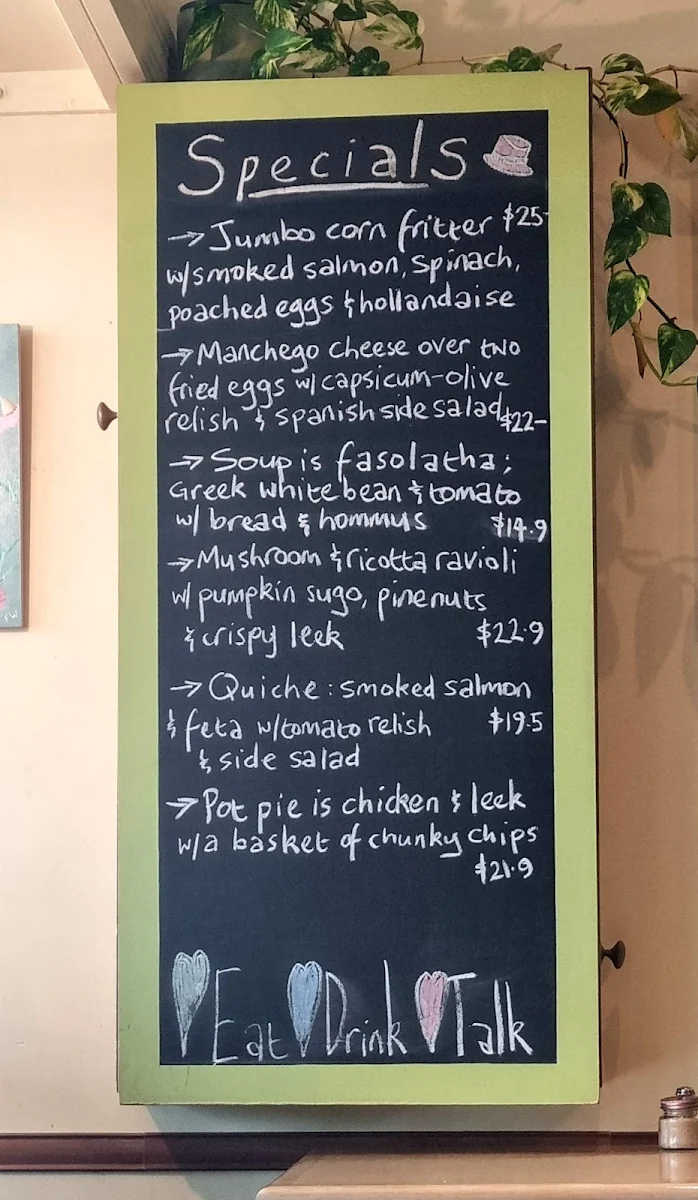 Specials
→ Jumbo corn fritter $25-
w/smoked salmon, spinach,
poached eggs & hollandaise
→ Manchego cheese over two
fried eggs w/ capsicum-olive
relish & spanish side salad $22-
→ Soup is fasolatha;
Greek white bean & tomato
w/ bread & hommus $14.9
→ Mushroom & ricotta ravioli
w/ pumpkin sugo, pinenuts
& crispy leek $22.9
→ Quiche: smoked salmon
& feta w/tomato relish $19.5
& side salad
→ Pot pie is chicken & leek
w/a basket of chunky chips
$21.9
Eat Drink Talk